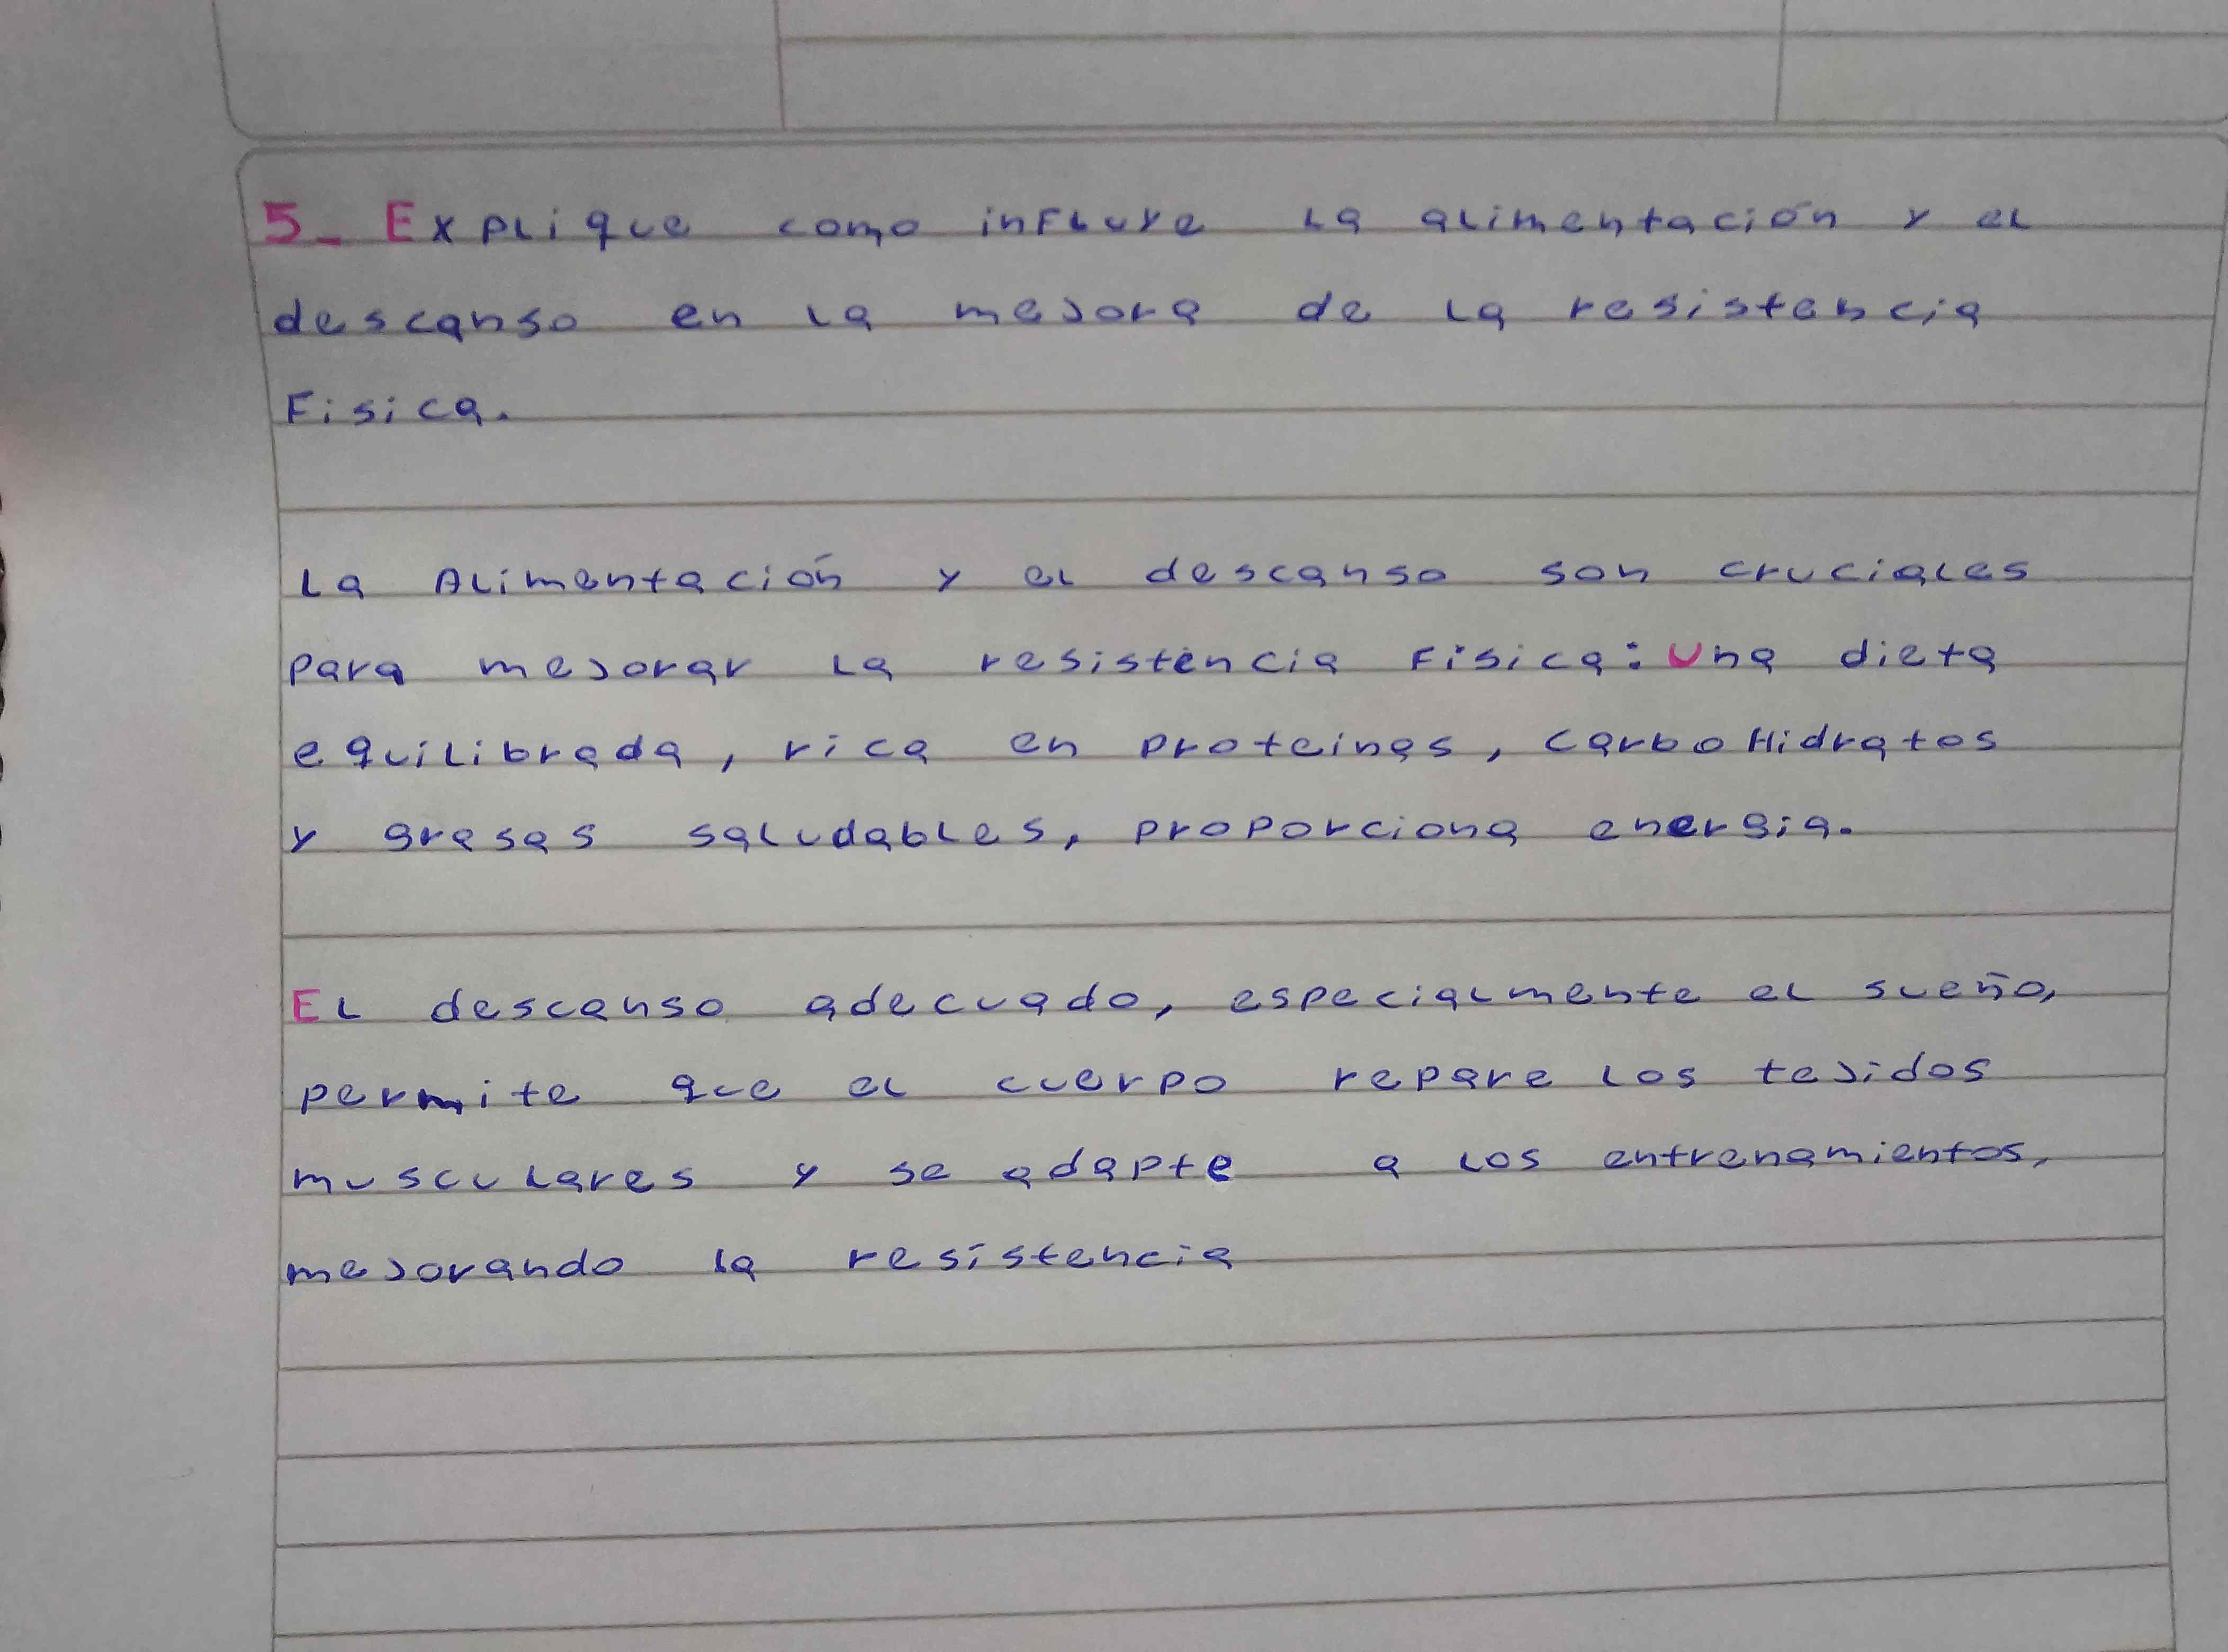 5- Explique como influye la alimentación y el
descanso en la mejora de la resistencia
Fisica.
La Alimentación y el descanso son cruciales
para mejorar la resistencia Física: Una dieta
equilibrada, rica en proteinas, carboHidratos
y grasas saludables, proporciona energia.
El descanso adecuado, especialmente el sueño,
permite que el cuerpo repare los tejidos
musculares y se adapte a los entrenamientos,
mejorando la resistencia